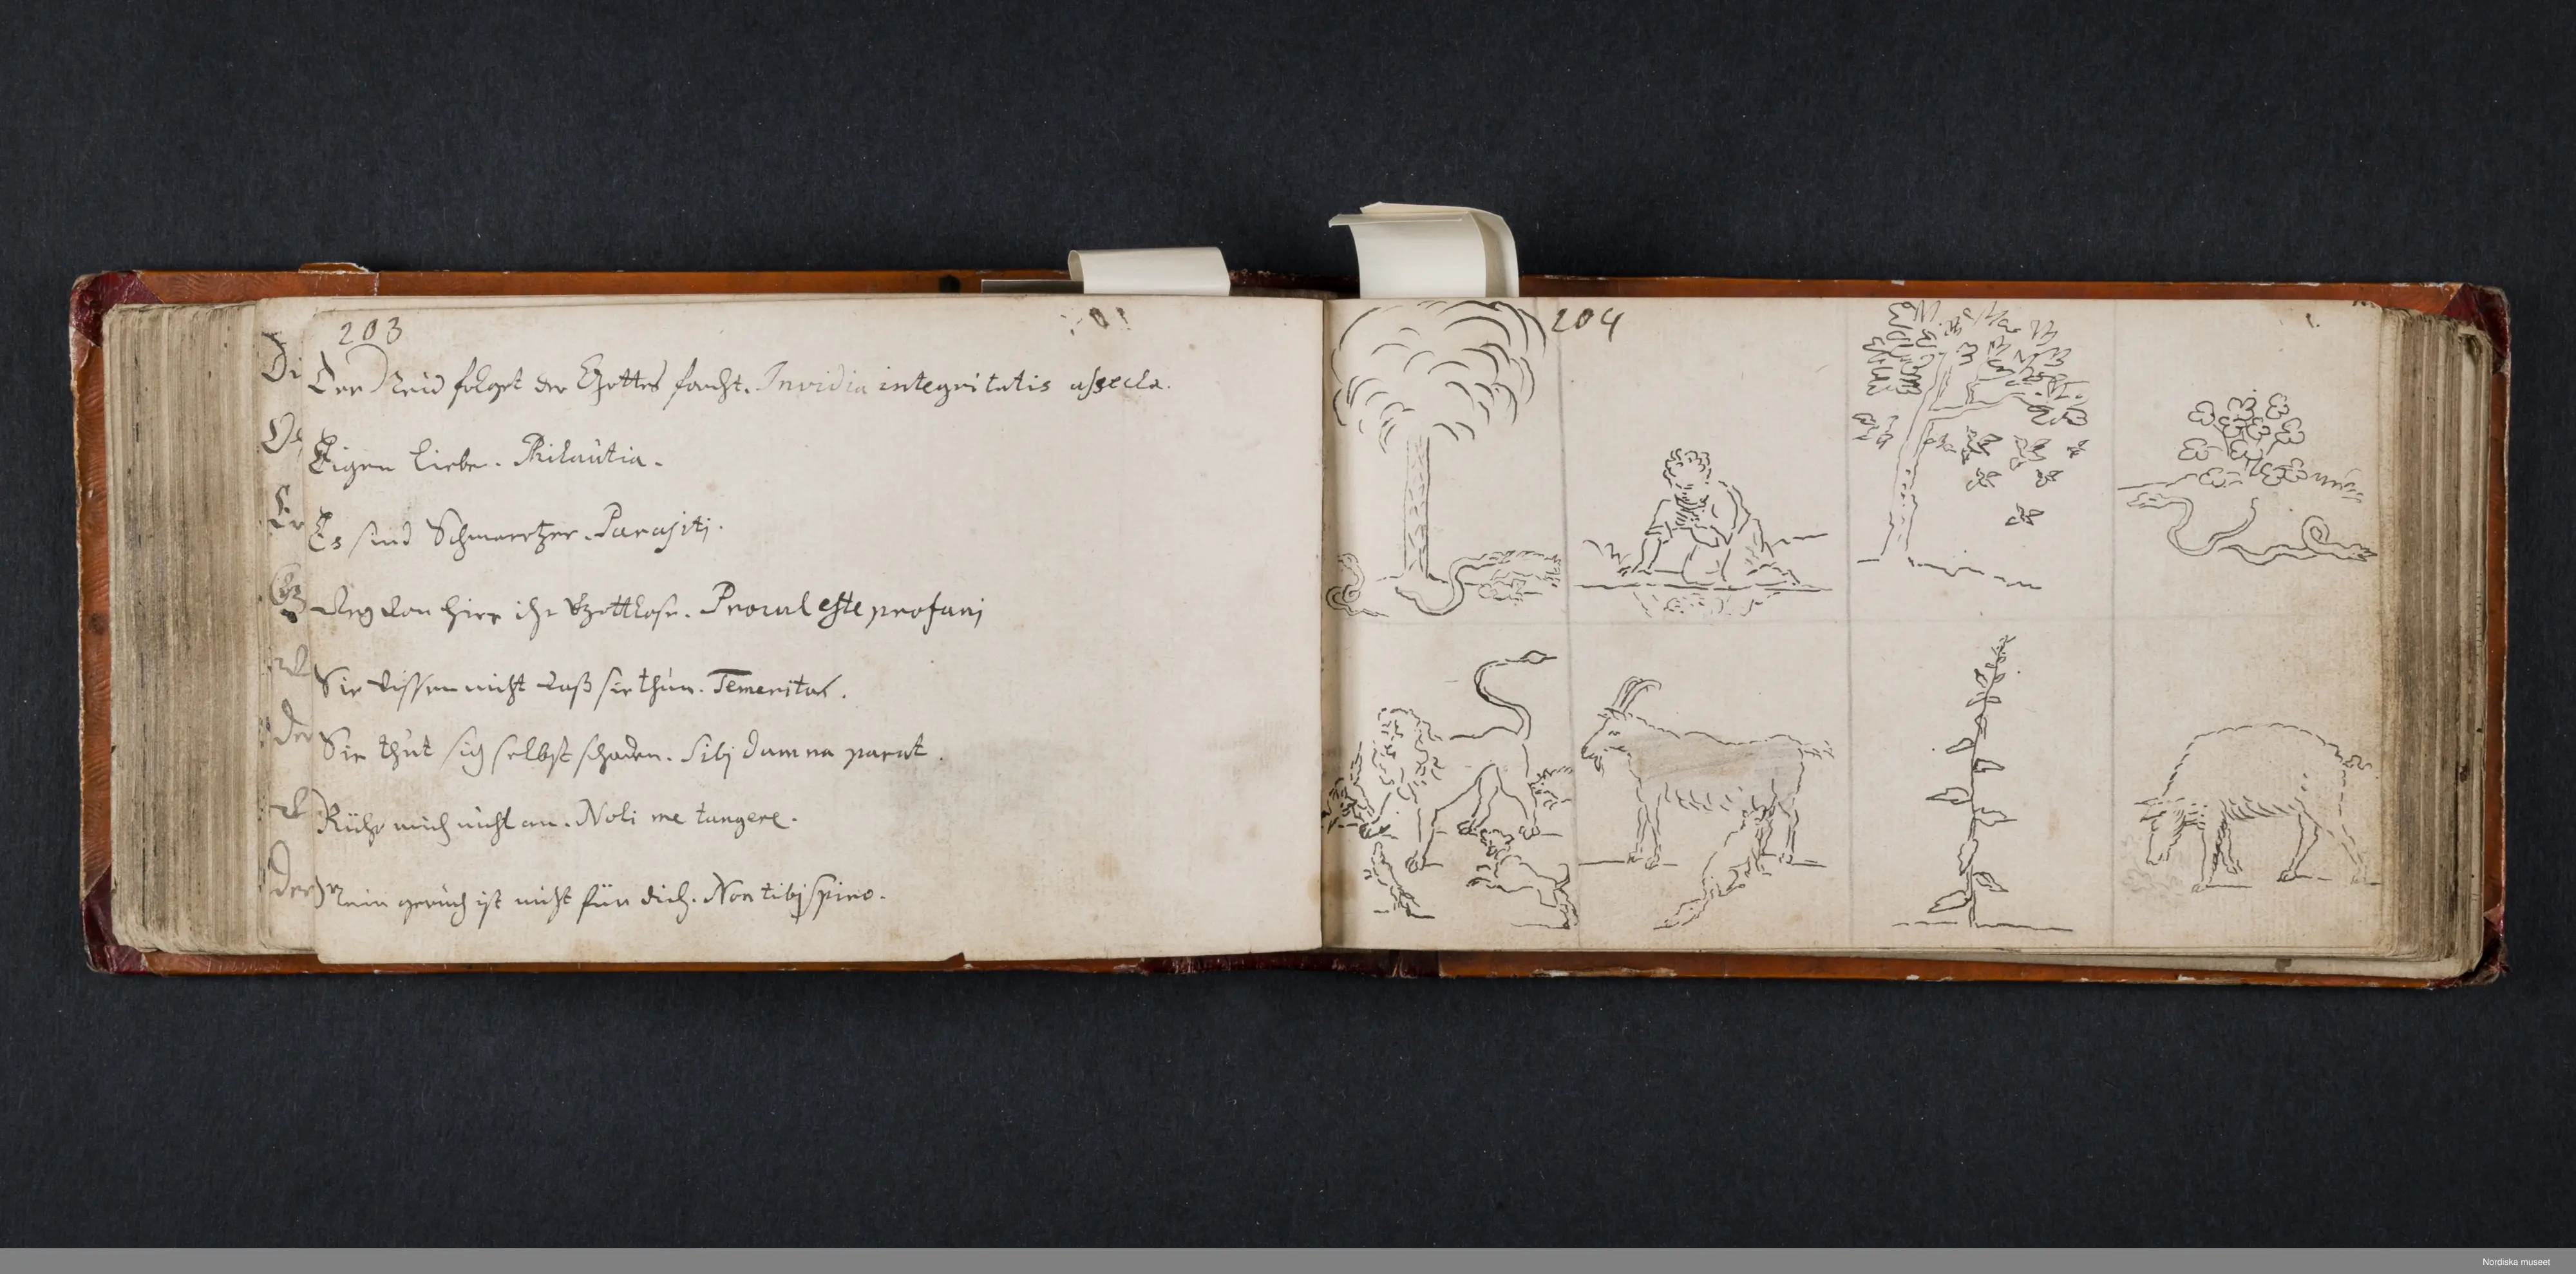 203
Der Neid folget der Gottes forcht. Invidia integritatis assecla.
Eigen liebe. Philautia.
Es sind Schmarotzer. Parasitj.
Weg von hier ihr Gottlose. Procul este profanj
Sie wissen nicht waß sie thun. Temeritas.
Sie thut sich selbst schaden. Sibj damna parat.
Rühr mich nicht an. Noli me tangere.
Mein geruch ist nicht für dich. Non tibj spiro.
Di
Er
Der
Der
204
Nordiska museet